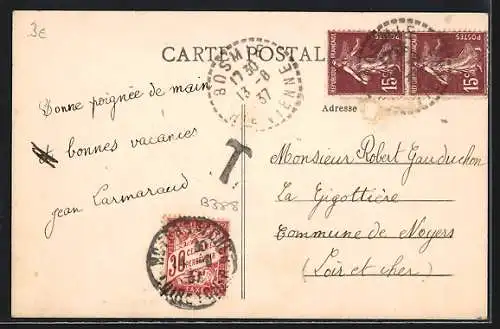 3€
CARTE POSTALE
BOSMIE
17 30
13 - 8
37
HTE VIENNE
POSTES
REPUBLIQUE FRANÇAISE
15c
POSTES
REPUBLIQUE FRANÇAISE
15c
Adresse
Bonne poignée de main
& bonnes vacances
Jean Larmaraud
T
B388
Monsieur Robert Gauduchon
La Gigottière
Commune de Noyers
(Loir et cher)
30
CENTIMES
A PERCEVOIR
37